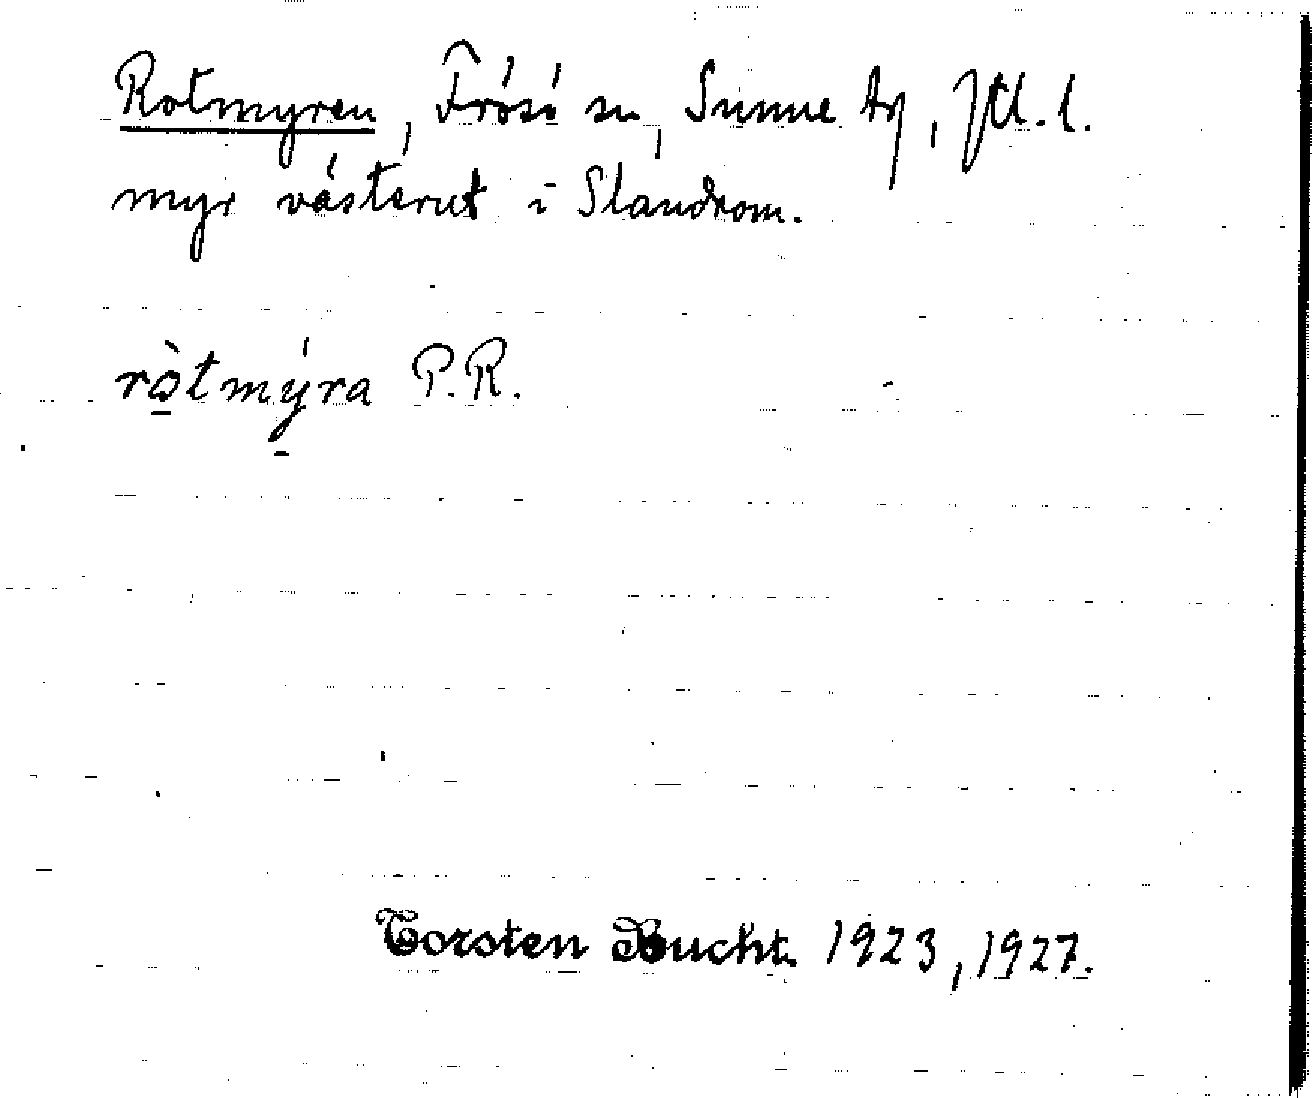 Rotmyren, Frösö sn, Sunne tg, Jtl. l.
myr västerut i Slandrom.
ròtmýra P.R.
Torsten Bucht. 1923, 1927.